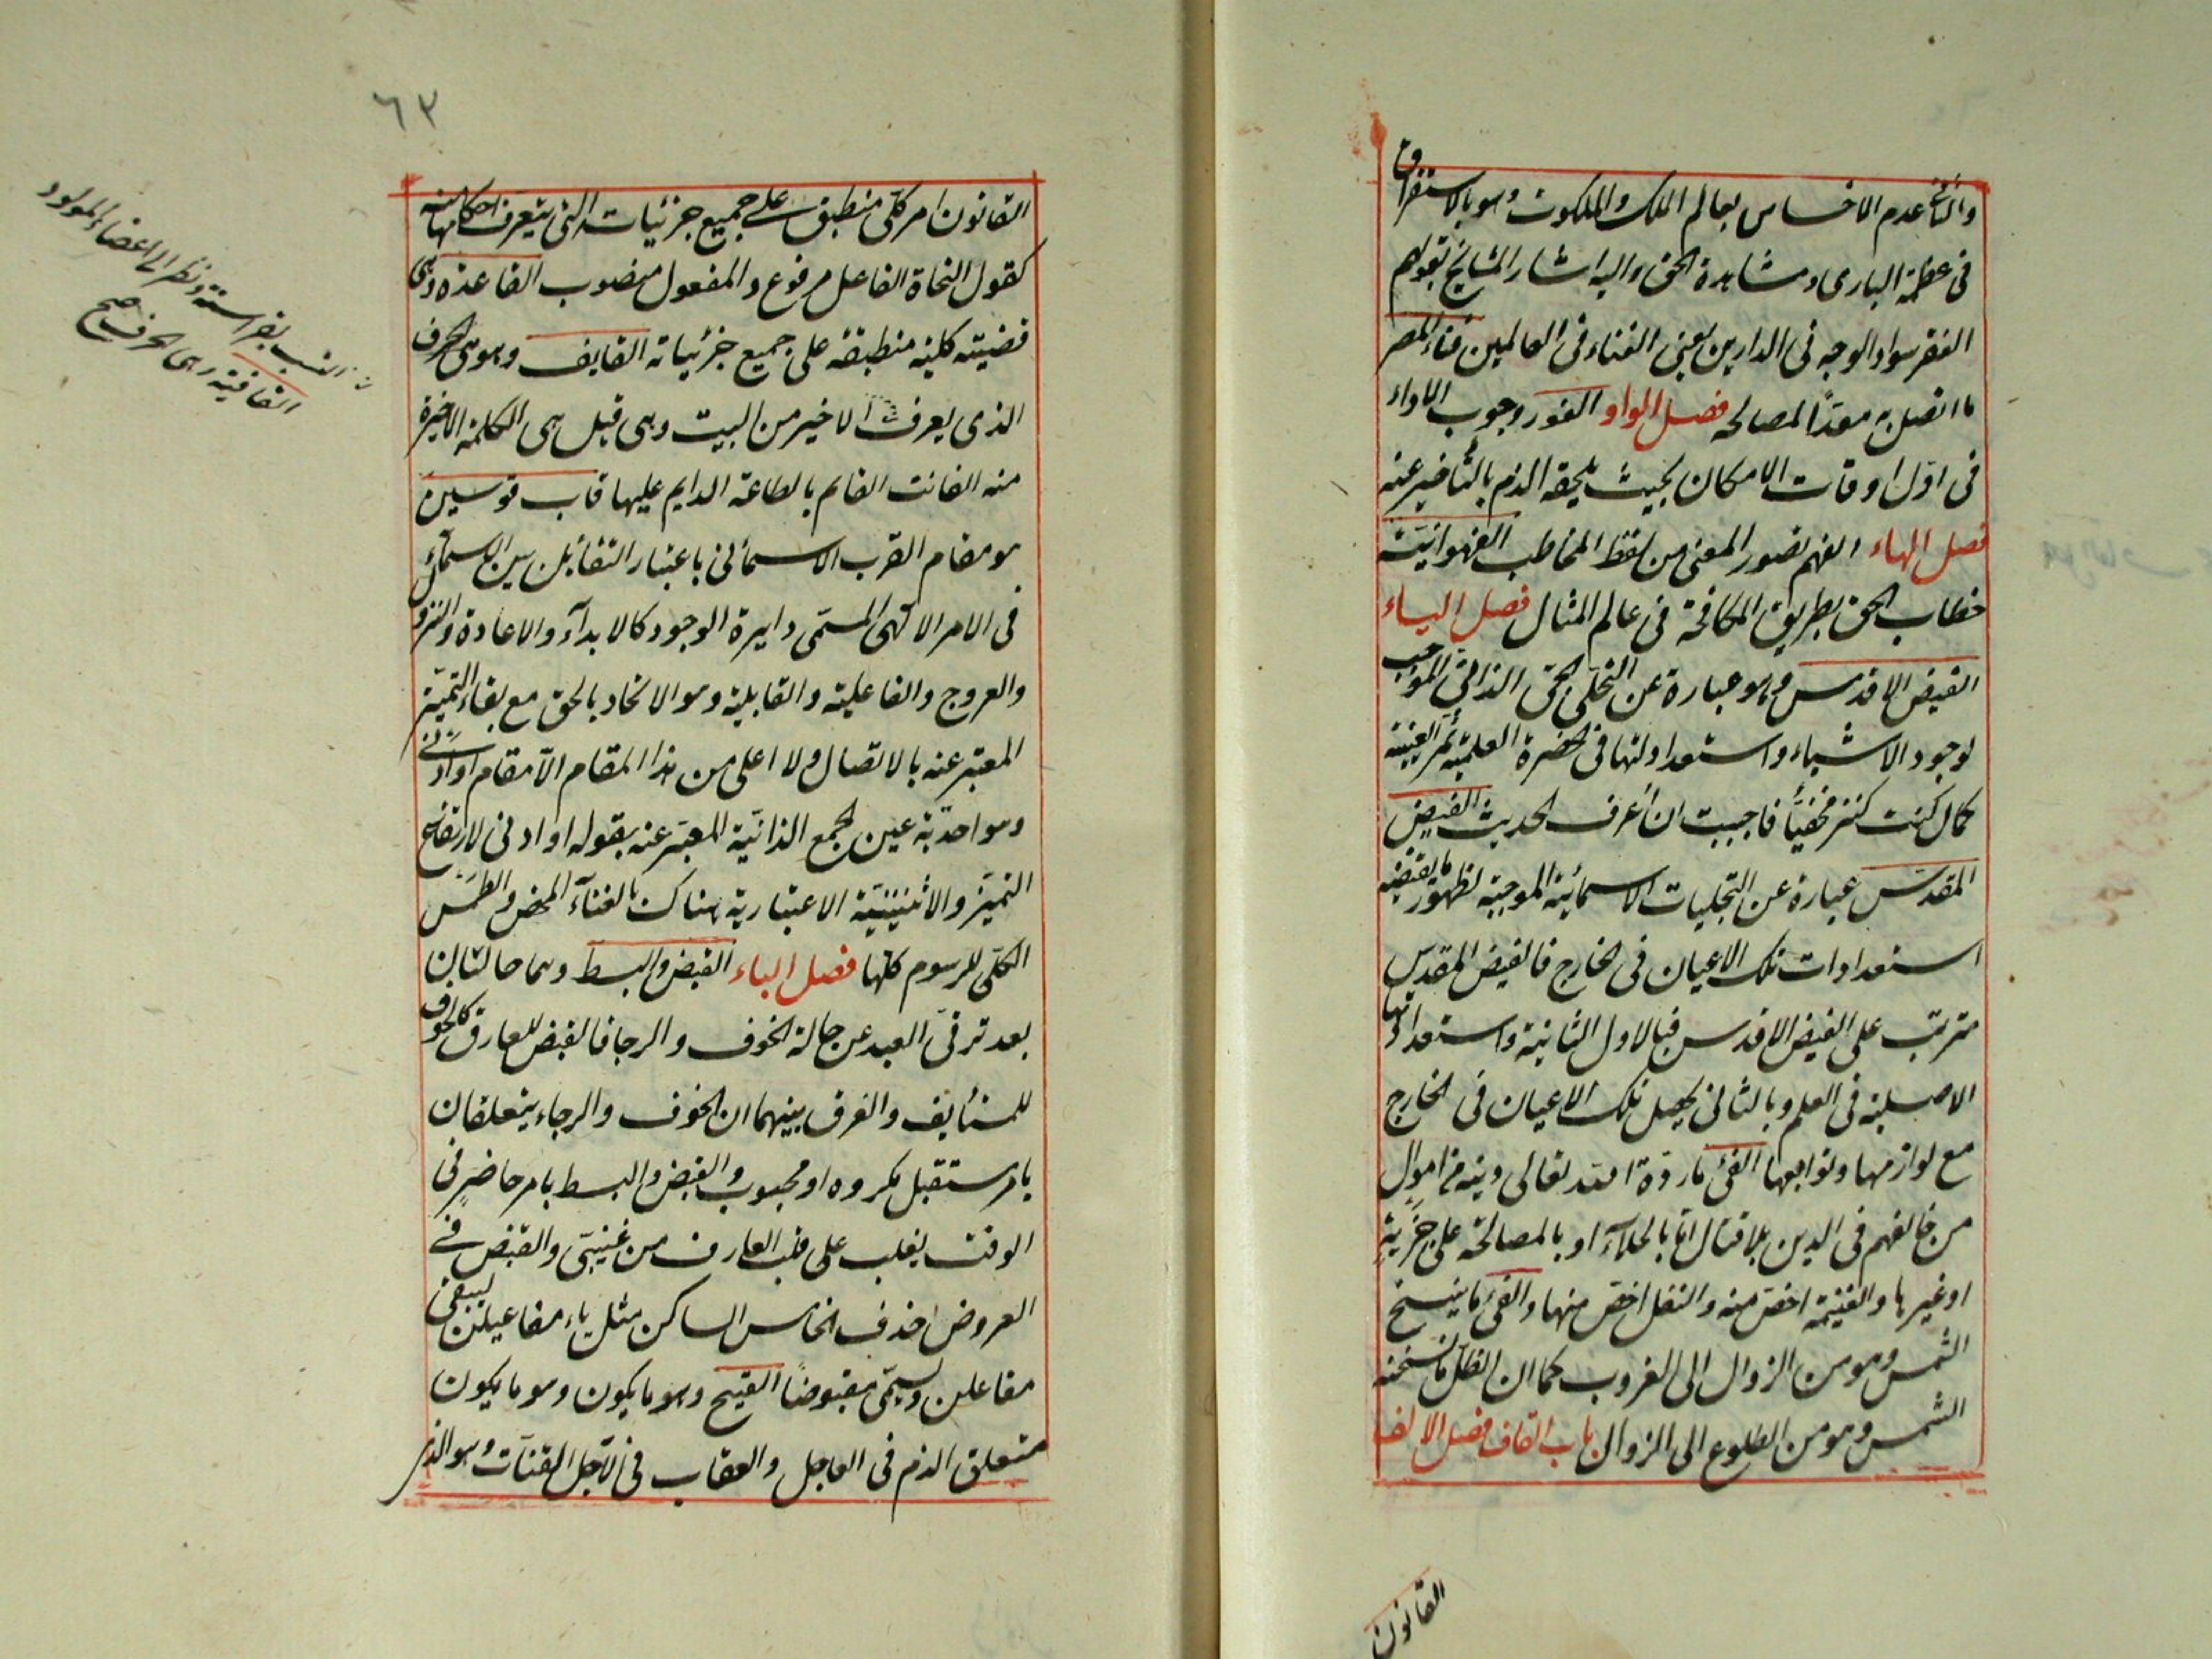 والثانى عدم الاحساس بعالم الملك والملكوت وهو بالاستغراق
فى عظمة البارى ومشاهدة الحق واليه اشار المشايخ بقولهم
الفقر سواد الوجه فى الدارين يعنى الفناء فى العالمين فناء المصر
ما اتصل به معدًّا لمصالحه فصل الواو الفور وجوب الاداء
فى اوّل اوقات الامكان بحيث يلحقه الذم بالتأخير عنه
فصل الهاء الفهم تصور المعنى من لفظ المخاطب الفهوانيّة
خطاب الحق بطريق المكافحة فى عالم المثال فصل الياء
الفيض الاقدس وهو عبارة عن التجلّى الحبّى الذاتىّ الموجب
لوجود الاشياء واستعداداتها فى الحضرة العلمية ثم العينية
كما قال كنت كنزا مخفيًّا فاحببت ان اُعرف الحديث الفيض
المقدّس عبارة عن التجليات الاسمائية الموجبة لظهور ما يقتضيه
استعدادات تلك الاعيان فى الخارج فالفيض المقدس
مترتب على الفيض الاقدس فبالاول الثانية واستعداداتها
الاصلية فى العلم وبالثانى يحصل تلك الاعيان فى الخارج
مع لوازمها وتوابعها الفىء ما ردّه الله تعالى دينه من اموال
من خالفهم فى الدين بلا قتال امّا بالجلاء او بالمصالحة على جزية
او غيرها والغنيمة اخصّ منه والنفل اخصّ منها والفىء ما ينسخ
الشمس وهو من الزوال الى الغروب كما ان الظلّ ما نسخته
الشمس وهو من الطلوع الى الزوال باب القاف فصل الالف
القانون
٦٣
القانون امر كلّى منطبق على جميع جزئيات التى يتعرف احكامها منه
كقول النحاة الفاعل مرفوع والمفعول منصوب القاعدة وهى
قضية كلية منطبقة على جميع جزئياته القايف وهو هى الحرف
الذى يعرف الاخير من البيت وهى قيل هى الكلمة الاخيرة
منه القانت القايم بالطاعة الدايم عليها قاب قوسين
هو مقام القرب الاسمائى باعتبار التقابل بين الاسماء
فى الامر الالهى المسمّى دايرة الوجود كالابدآء والاعادة والنزول
والعروج والفاعلية والقابلية وهو الاتحاد بالحق مع بقاء التميّز
المعبّر عنه بالاتصال ولا اعلى من هذا المقام الّا مقام او ادنى
وهو احديّة عين الجمع الذاتيّة المعبّر عنه بقوله او ادنى لارتفاع
التميّز والاثنينيّة الاعتبارية هناك بالفناء المحض والطمس
الكلّى للرسوم كلّها فصل الباء القبض والبسط وهما حالتان
بعد ترقّى العبد عن حالة الخوف والرجا فالقبض للعارف كالخوف
للمستأنف والفرق بينهما ان الخوف والرجاء يتعلقان
بامر مستقبل مكروه او محبوب والقبض والبسط بامر حاضر فى
الوقت يغلب على قلب العارف من غيبىّ والقبض فى
العروض احذف الخامس الساكن مثل ياء مفاعيلن ليبقى
مفاعلن ويسمّى مقبوضًا القبيح وهو ما يكون وهو ما يكون
متعلق الذم فى العاجل والعقاب فى الآجل القتات وهو الذى
النسب بفراسته ونظر الى اعضاء المولود
القافية وهى الحرف صح